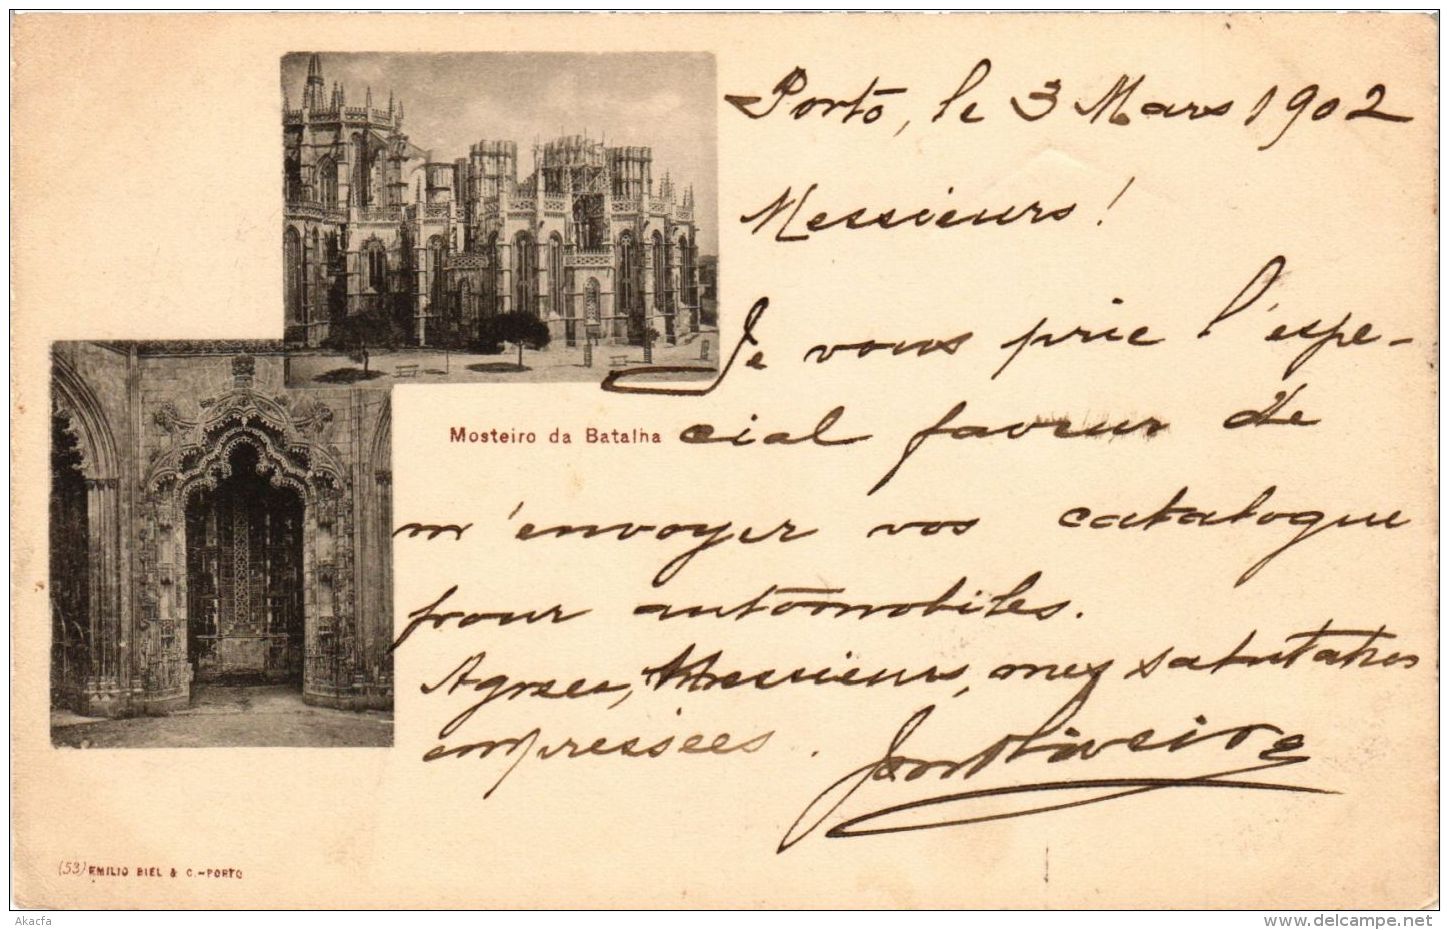 Porto, le 3 Mars 1902
Messieurs!
Je vous prie l'espe-
cial faveur de
m'envoyer vos catalogue
pour automobiles.
Agreez, Messieurs, mes salutations
empressées.
Oliveira
Mosteiro da Batalha
(53) EMILIO BIEL & C.-PORTO
Akacfa
www.delcampe.net